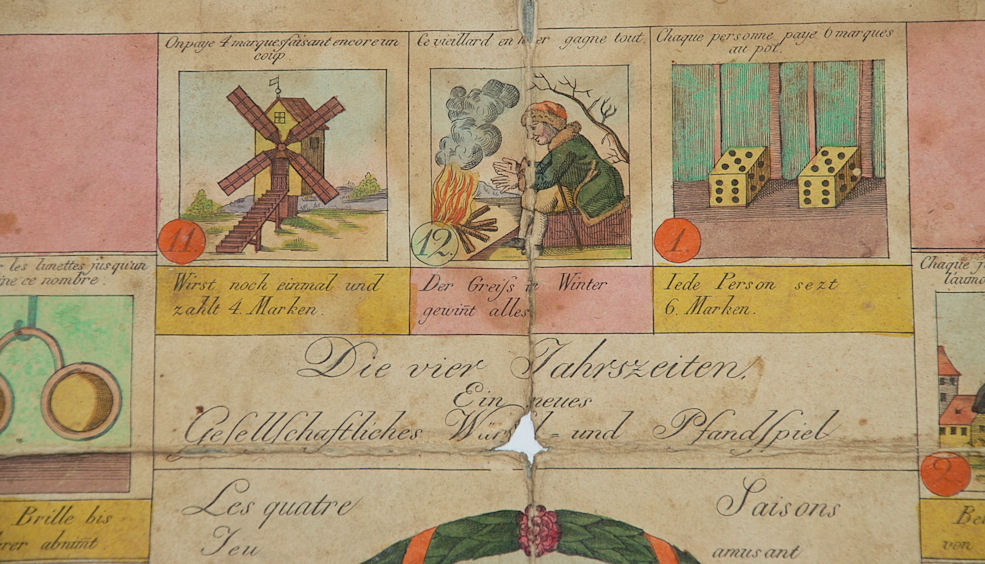 On paye 4 marques faisant encore un
coup.
Ce vieillard en hiver gagne tout.
Chaque personne paye 6 marques
au pot.
11.
12.
1.
Wirst noch einmal und
zahlt 4. Marken.
Der Greiſs in Winter
gewin̄t alles.
Iede Person sezt
6. Marken.
les lunettes jusqu'un
ne ce nombre.
Chaque
Brille bis
abnim̄t
2.
von
Die vier Jahrszeiten.
Ein neues
Geſellſchaftliches Würfel= und Pfandſpiel
Les quatre Saisons
Jeu amusant